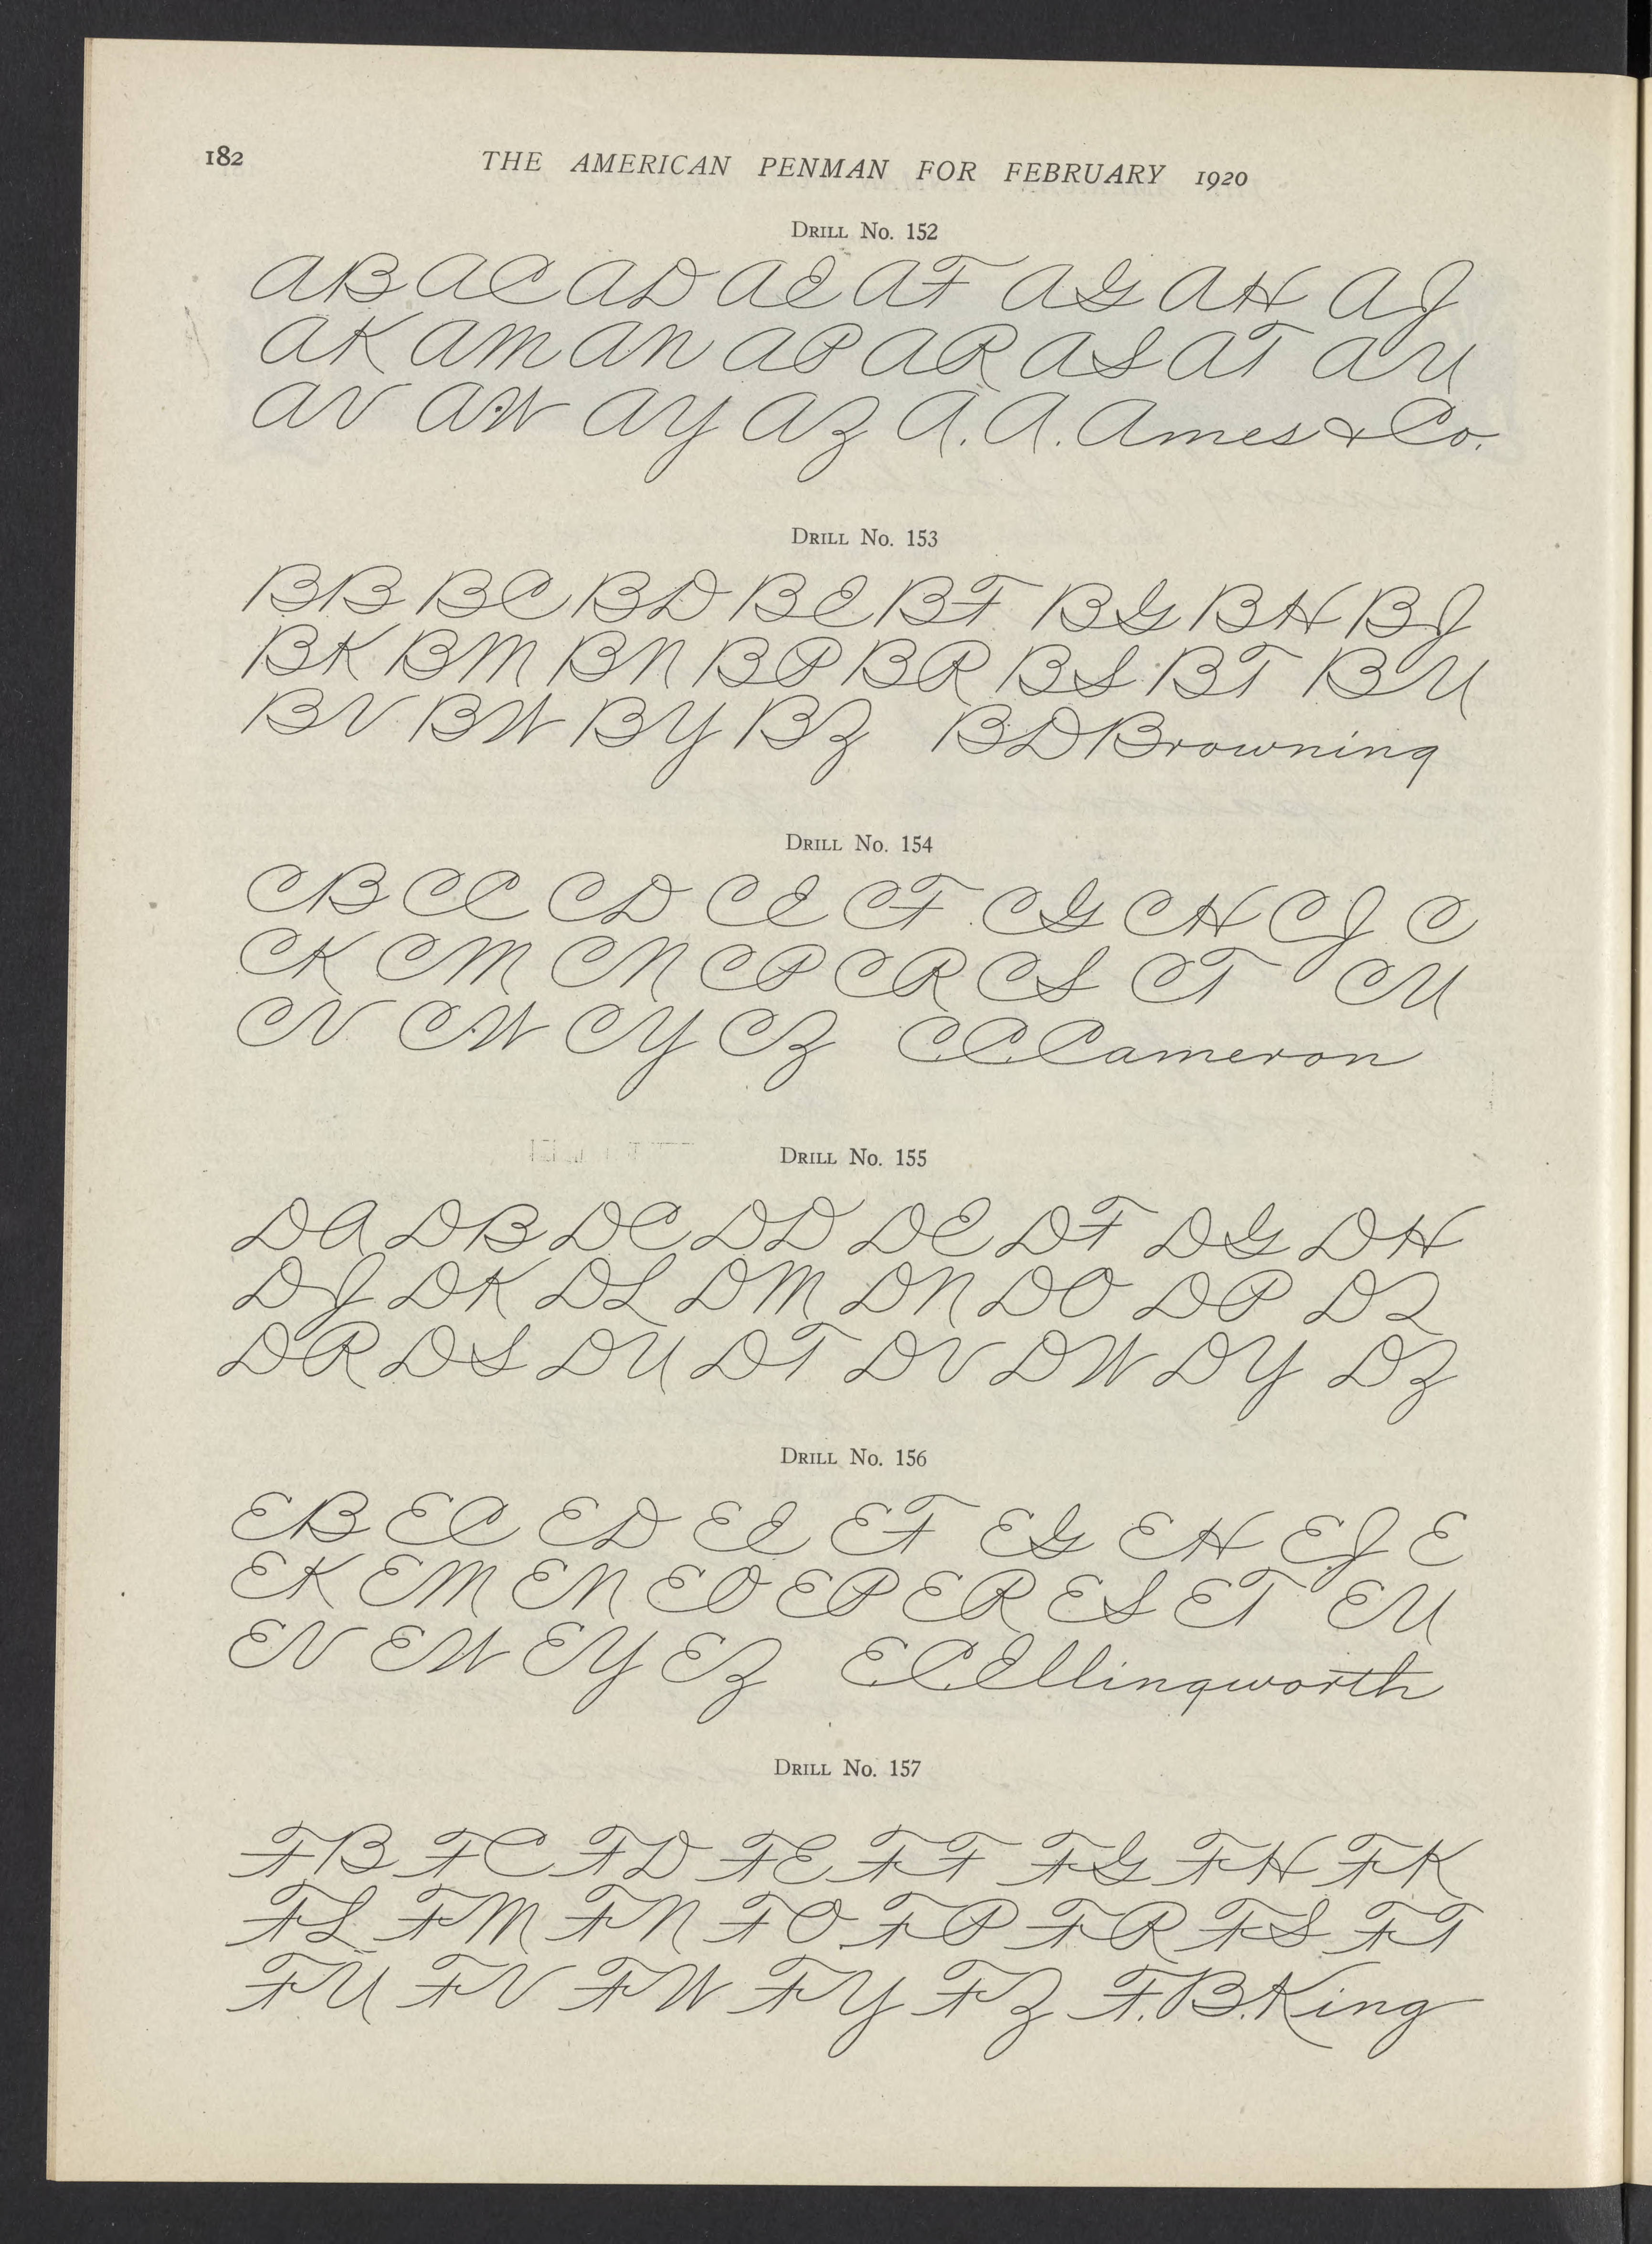 182
THE AMERICAN PENMAN FOR FEBRUARY 1920
DRILL No. 152
AB AC AD AE AF AG AH AJ
AK AM AN AP AR AS AT AU
AV AW AY AZ A. A. Ames & Co.
DRILL No. 153
BB BC BD BE BF BG BH BJ
BK BM BN BP BR BS BT BU
BV BW BY BZ BDBrowning
DRILL No. 154
CB CC CD CE CF CG CH CJ C
CK CM CN CP CR CS CT CU
CV CW CY CZ C.C.Cameron
DRILL No. 155
DA DB DC DD DE DF DG DH
DJ DK DL DM DN DO DP DQ
DR DS DU DT DV DW DY DZ
DRILL No. 156
EB EC ED EE EF EG EH EJ E
EK EM EN EO EP ER ES ET EU
EV EW EY EZ E.C.Ellingworth
DRILL No. 157
FB FC FD FE FF FG FH FK
FL FM FN FO FP FR FS FT
FU FV FW FY FZ F.B.King